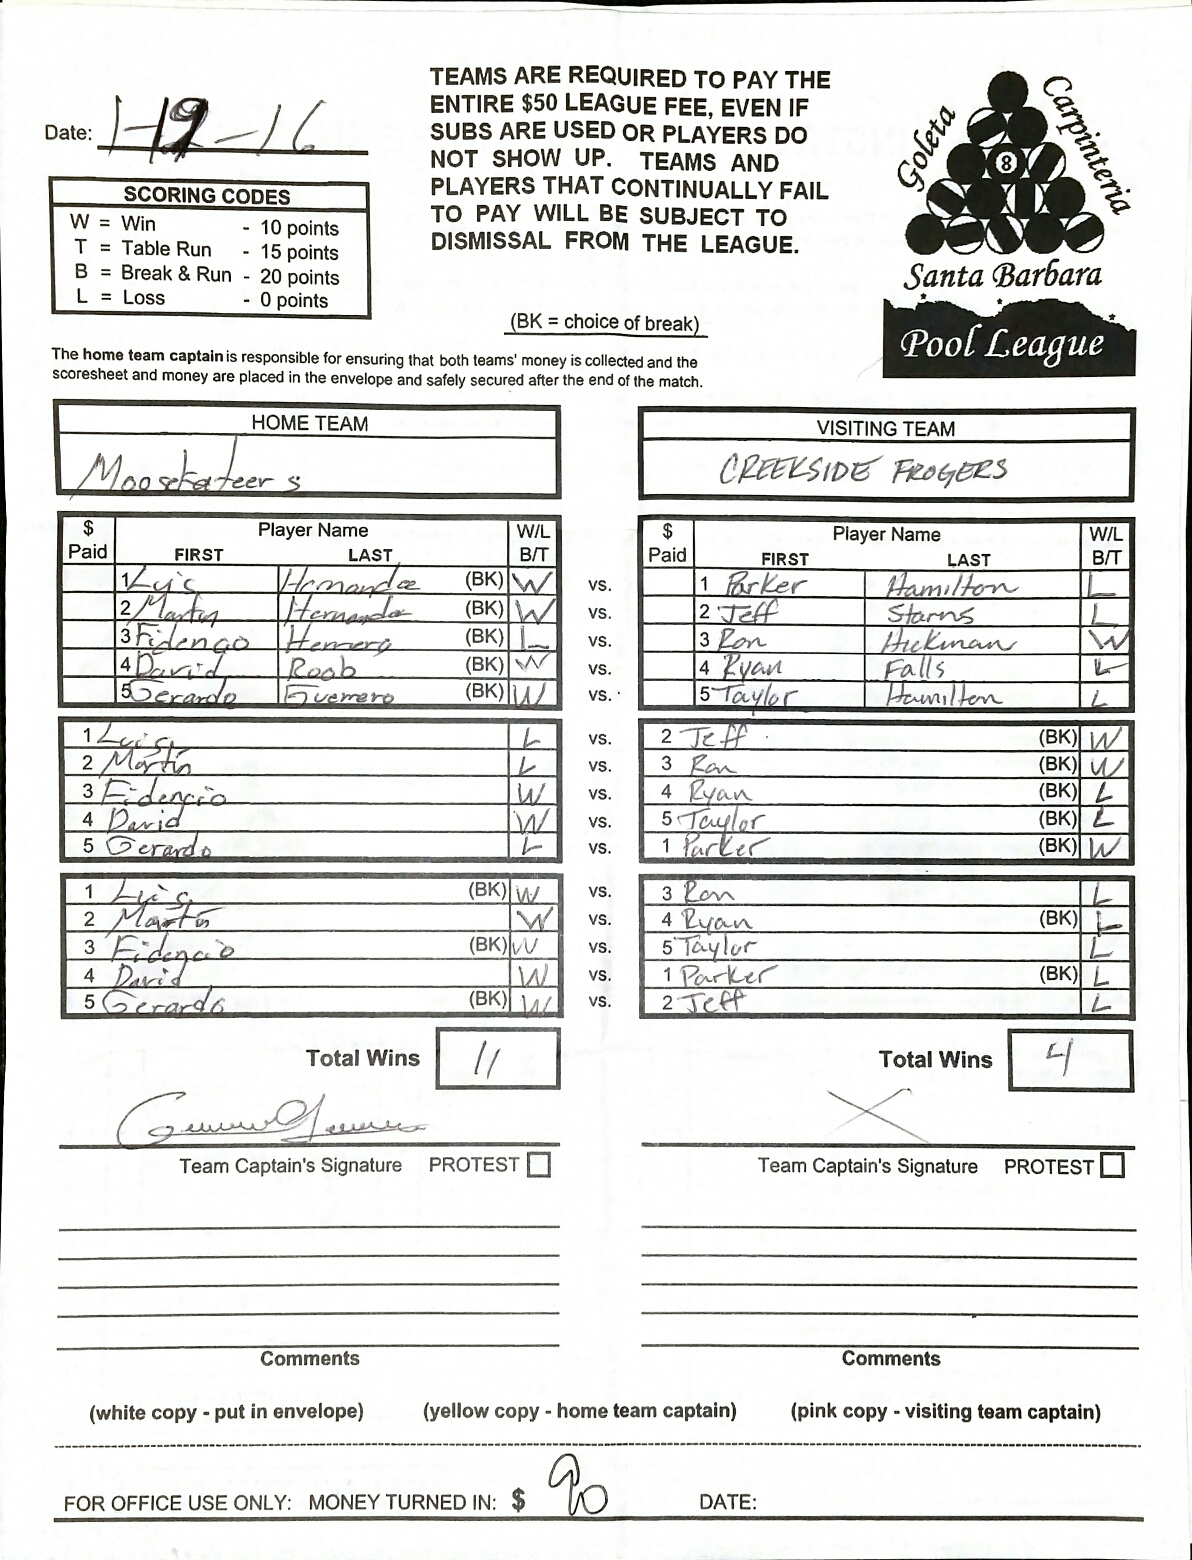 TEAMS ARE REQUIRED TO PAY THE
ENTIRE $50 LEAGUE FEE, EVEN IF
SUBS ARE USED OR PLAYERS DO
NOT SHOW UP. TEAMS AND
PLAYERS THAT CONTINUALLY FAIL
TO PAY WILL BE SUBJECT TO
DISMISSAL FROM THE LEAGUE.
Date: 1-19-16
SCORING CODES
W = Win - 10 points
T = Table Run - 15 points
B = Break & Run - 20 points
L = Loss - 0 points
Goleta
Carpinteria
8
Santa Barbara
Pool League
(BK = choice of break)
The home team captain is responsible for ensuring that both teams' money is collected and the
scoresheet and money are placed in the envelope and safely secured after the end of the match.
HOME TEAM VISITING TEAM
Moosekateers CREEKSIDE FROGERS
$ Paid Player Name FIRST LAST W/L B/T $ Paid Player Name FIRST LAST W/L B/T
1 Luis (BK) W vs. 1 Parker Hamilton L
2 Martin (BK) W vs. 2 Jeff Starns L
3 Fidencio Herrera (BK) L vs. 3 Ron Hickman W
4 David Roob (BK) W vs. 4 Ryan Falls L
5 Gerardo Guerrero (BK) W vs. 5 Taylor Hamilton L
1 Luis L vs. 2 Jeff (BK) W
2 Martin L vs. 3 Ron (BK) W
3 Fidencio W vs. 4 Ryan (BK) L
4 David W vs. 5 Taylor (BK) L
5 Gerardo L vs. 1 Parker (BK) W
1 Luis (BK) W vs. 3 Ron L
2 Martin W vs. 4 Ryan (BK) L
3 Fidencio (BK) W vs. 5 Taylor L
4 David W vs. 1 Parker (BK) L
5 Gerardo (BK) W vs. 2 Jeff L
Total Wins 11 Total Wins 4
X
Team Captain's Signature PROTEST Team Captain's Signature PROTEST
Comments Comments
(white copy - put in envelope) (yellow copy - home team captain) (pink copy - visiting team captain)
FOR OFFICE USE ONLY: MONEY TURNED IN: $ 90 DATE: